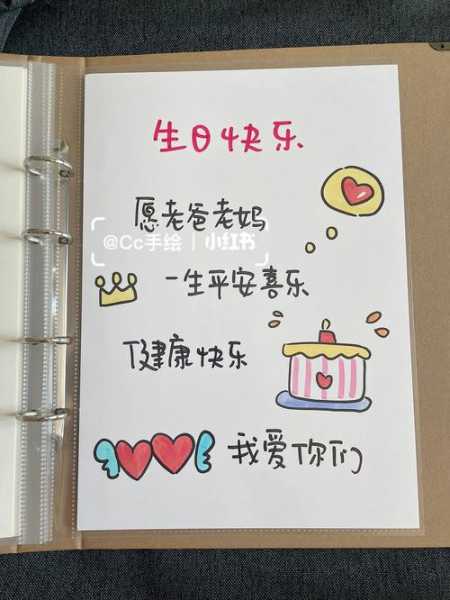 生日快乐
愿老爸老妈
@Cc手绘 | 小红书
一生平安喜乐
健康快乐
我爱你们